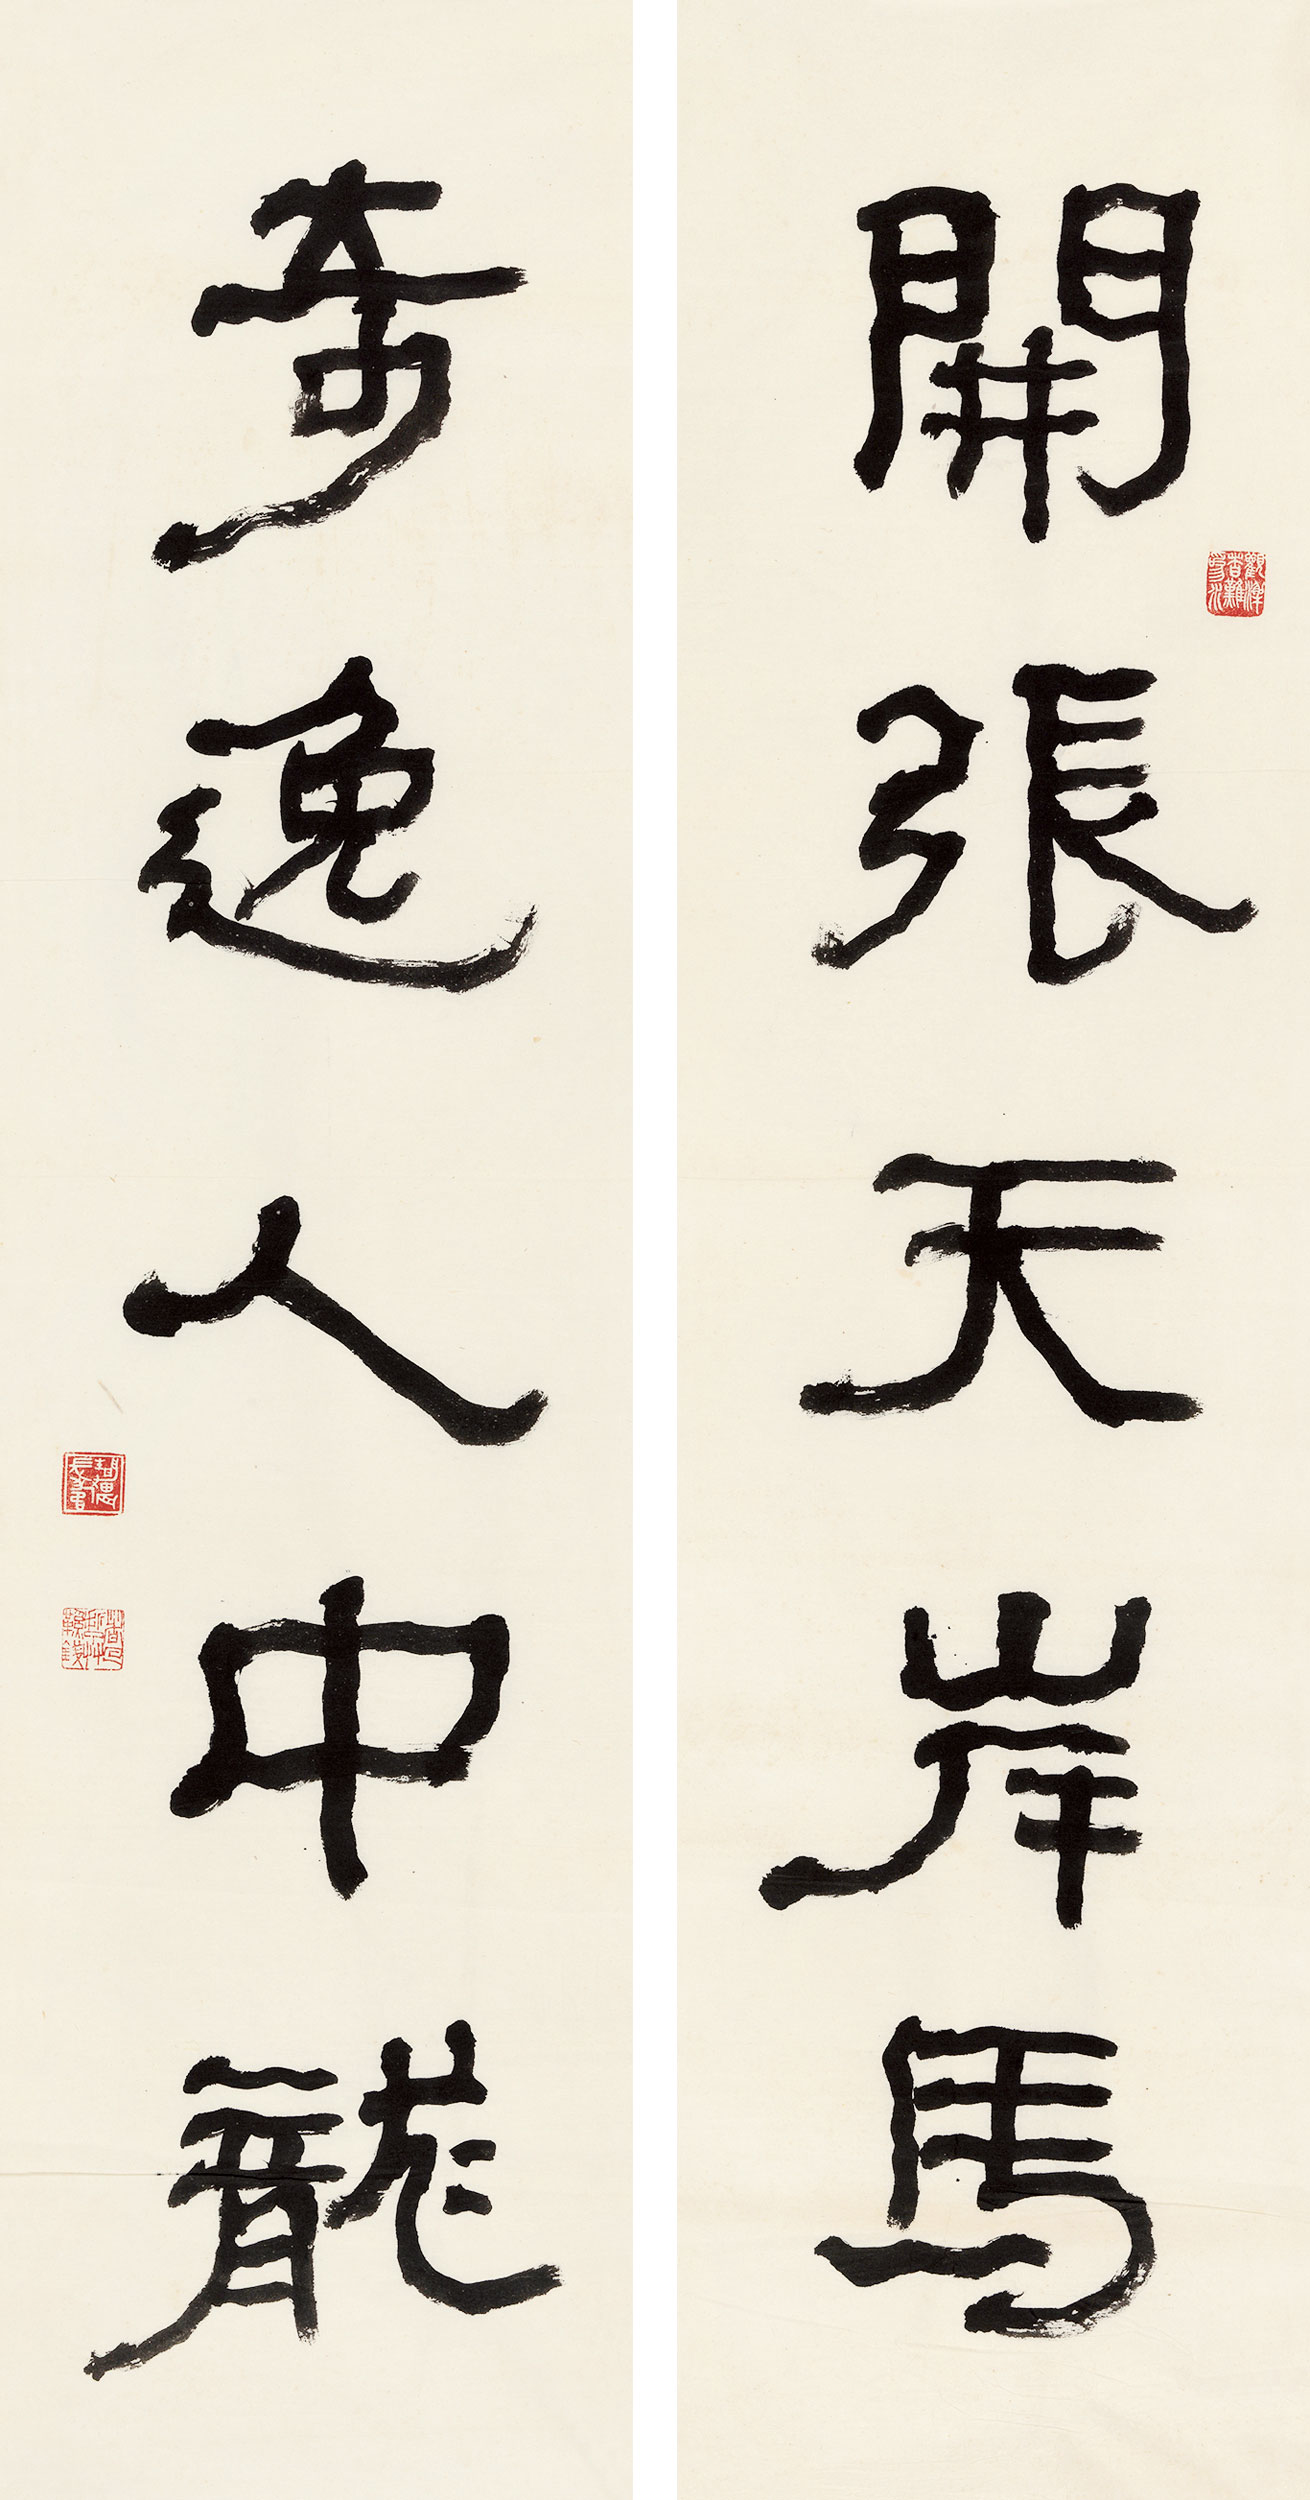 開張天岸馬
奇逸人中龍